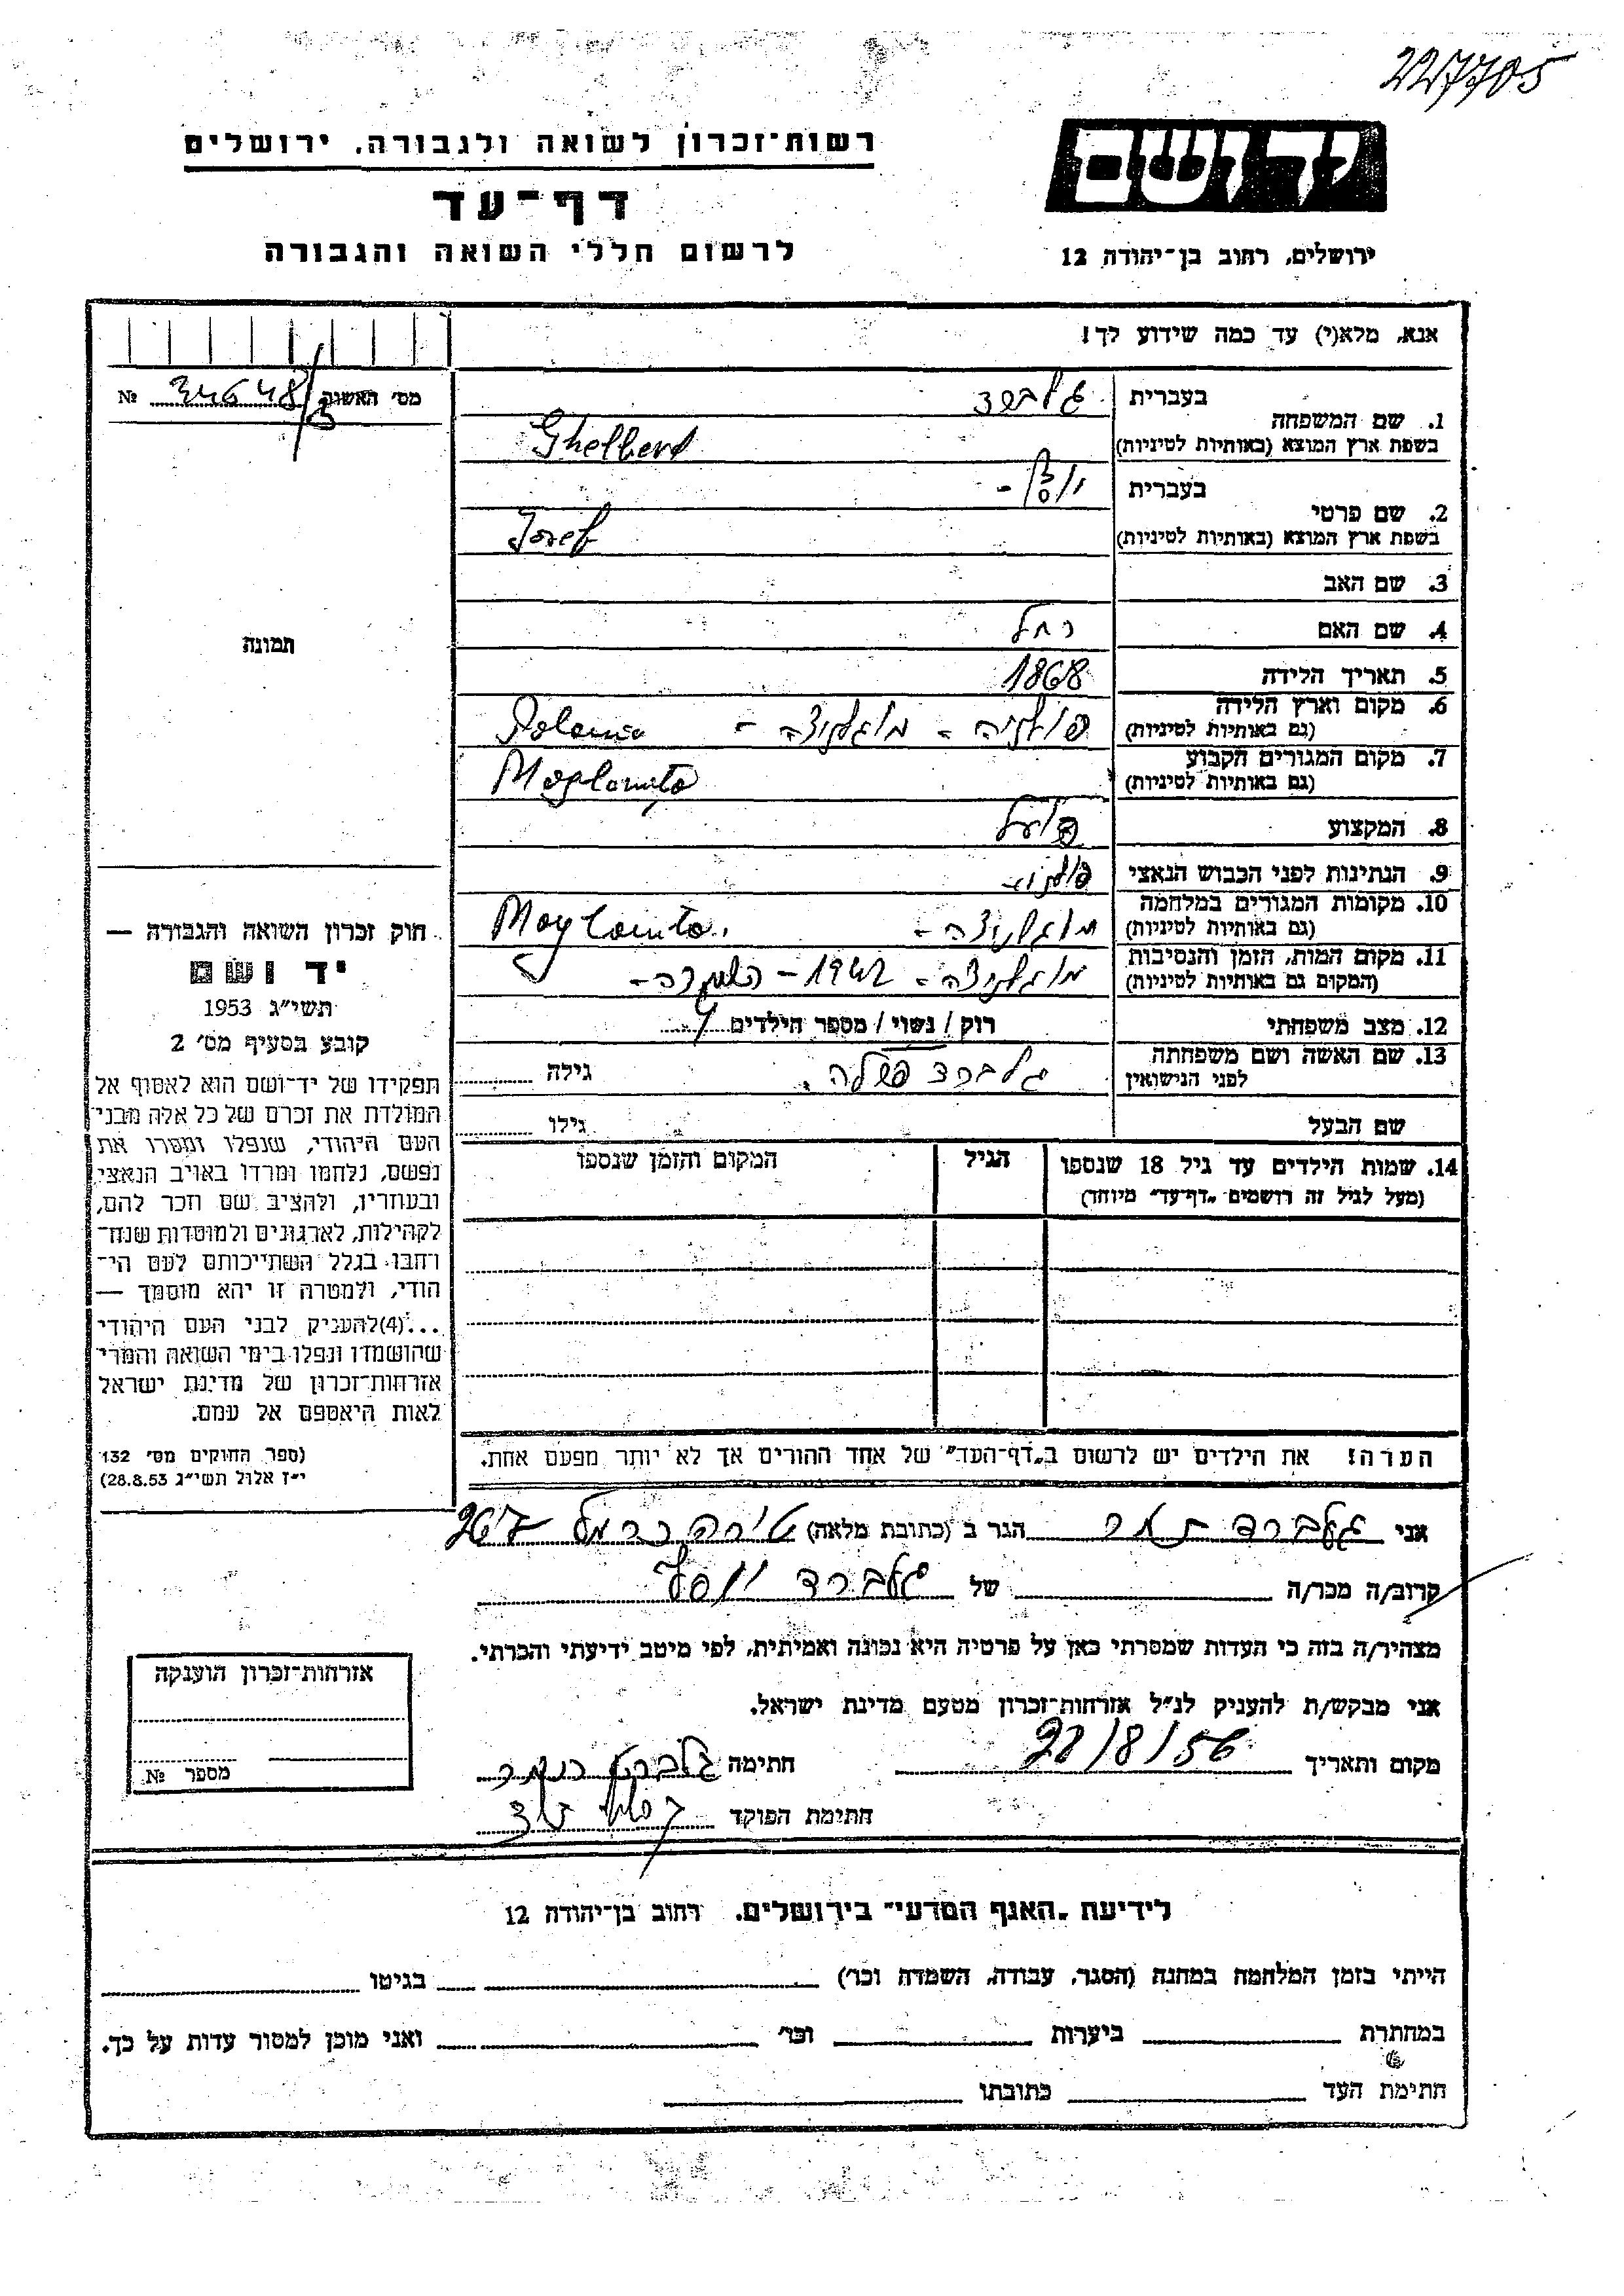 227705
רשות־זכרון לשואה ולגבורה, ירושלים
דף־עד
לרשום חללי השואה והגבורה
יד ושם
ירושלים, רחוב בן־יהודה 12
אנא, מלא(י) עד כמה שידוע לך!
מס׳ האשנה № 34648/3
1. שם המשפחה
בעברית גלברד
בשפת ארץ המוצא (באותיות לטיניות) Ghelberd
2. שם פרטי
בעברית יוסף -
בשפת ארץ המוצא (באותיות לטיניות) Josef
3. שם האב
4. שם האם רחל
5. תאריך הלידה 1868
6. מקום וארץ הלידה (גם באותיות לטיניות) פולניה - מוגלניצה - Polania
7. מקום המגורים הקבוע (גם באותיות לטיניות) Moglanița
8. המקצוע פועל
9. הנתינות לפני הכבוש הנאצי
10. מקומות המגורים במלחמה (גם באותיות לטיניות) מוגלניצה -
11. מקום המות, הזמן והנסיבות (המקום גם באותיות לטיניות) מוגלניצה - 1942 - השמדה -
12. מצב משפחתי רוק / נשוי / מספר הילדים
13. שם האשה ושם משפחתה לפני הנישואין גלברד גילה
שם הבעל גילו
14. שמות הילדים עד גיל 18 שנספו
(מעל לגיל זה רושמים „דף־עד״ מיוחד)
הגיל
המקום והזמן שנספו
הערה! את הילדים יש לרשום ב„דף־העד״ של אחד ההורים אך לא יותר מפעם אחת.
תמונה
חוק זכרון השואה והגבורה —
יד ושם
תשי״ג 1953
קובע בסעיף מס׳ 2
תפקידו של יד־ושם הוא לאסוף אל
המולדת את זכרם של כל אלה מבני
העם היהודי, שנפלו ומסרו את
נפשם, נלחמו ומרדו באויב הנאצי
ובעוזריו, ולהציב שם וזכר להם,
לקהילות, לארגונים ולמוסדות שנח־
רחבו בגלל השתייכותם לעם הי־
הודי, ולמטרה זו יהא מוסמך —
...(4)להעניק לבני העם היהודי
שהושמדו ונפלו בימי השואה והמרי
אזרחות־זכרון של מדינת ישראל
לאות היאספם אל עמם.
(ספר החוקים מס׳ 132
י״ז אלול תשי״ג 28.8.53)
אני גלברד תמר הגר ב (כתובת מלאה) טירה כרמל 267
קרוב/ה מכר/ה של גלברד יוסף
מצהיר/ה בזה כי העדות שמסרתי כאן על פרטיה היא נכונה ואמיתית, לפי מיטב ידיעתי והכרתי.
אני מבקש/ת להעניק לנ״ל אזרחות־זכרון מטעם מדינת ישראל.
מקום ותאריך חתימה גלברד תמר
חתימת הפוקד
אזרחות־זכרון הוענקה
מספר №
לידיעת „האגף המדעי״ בירושלים, רחוב בן־יהודה 12
הייתי בזמן המלחמה במחנה (הסגר, עבודה, השמדה וכר׳) בגיטו
במחתרת ביערות וכר׳ ואני מוכן למסור עדות על כך.
חתימת העד כתובתו